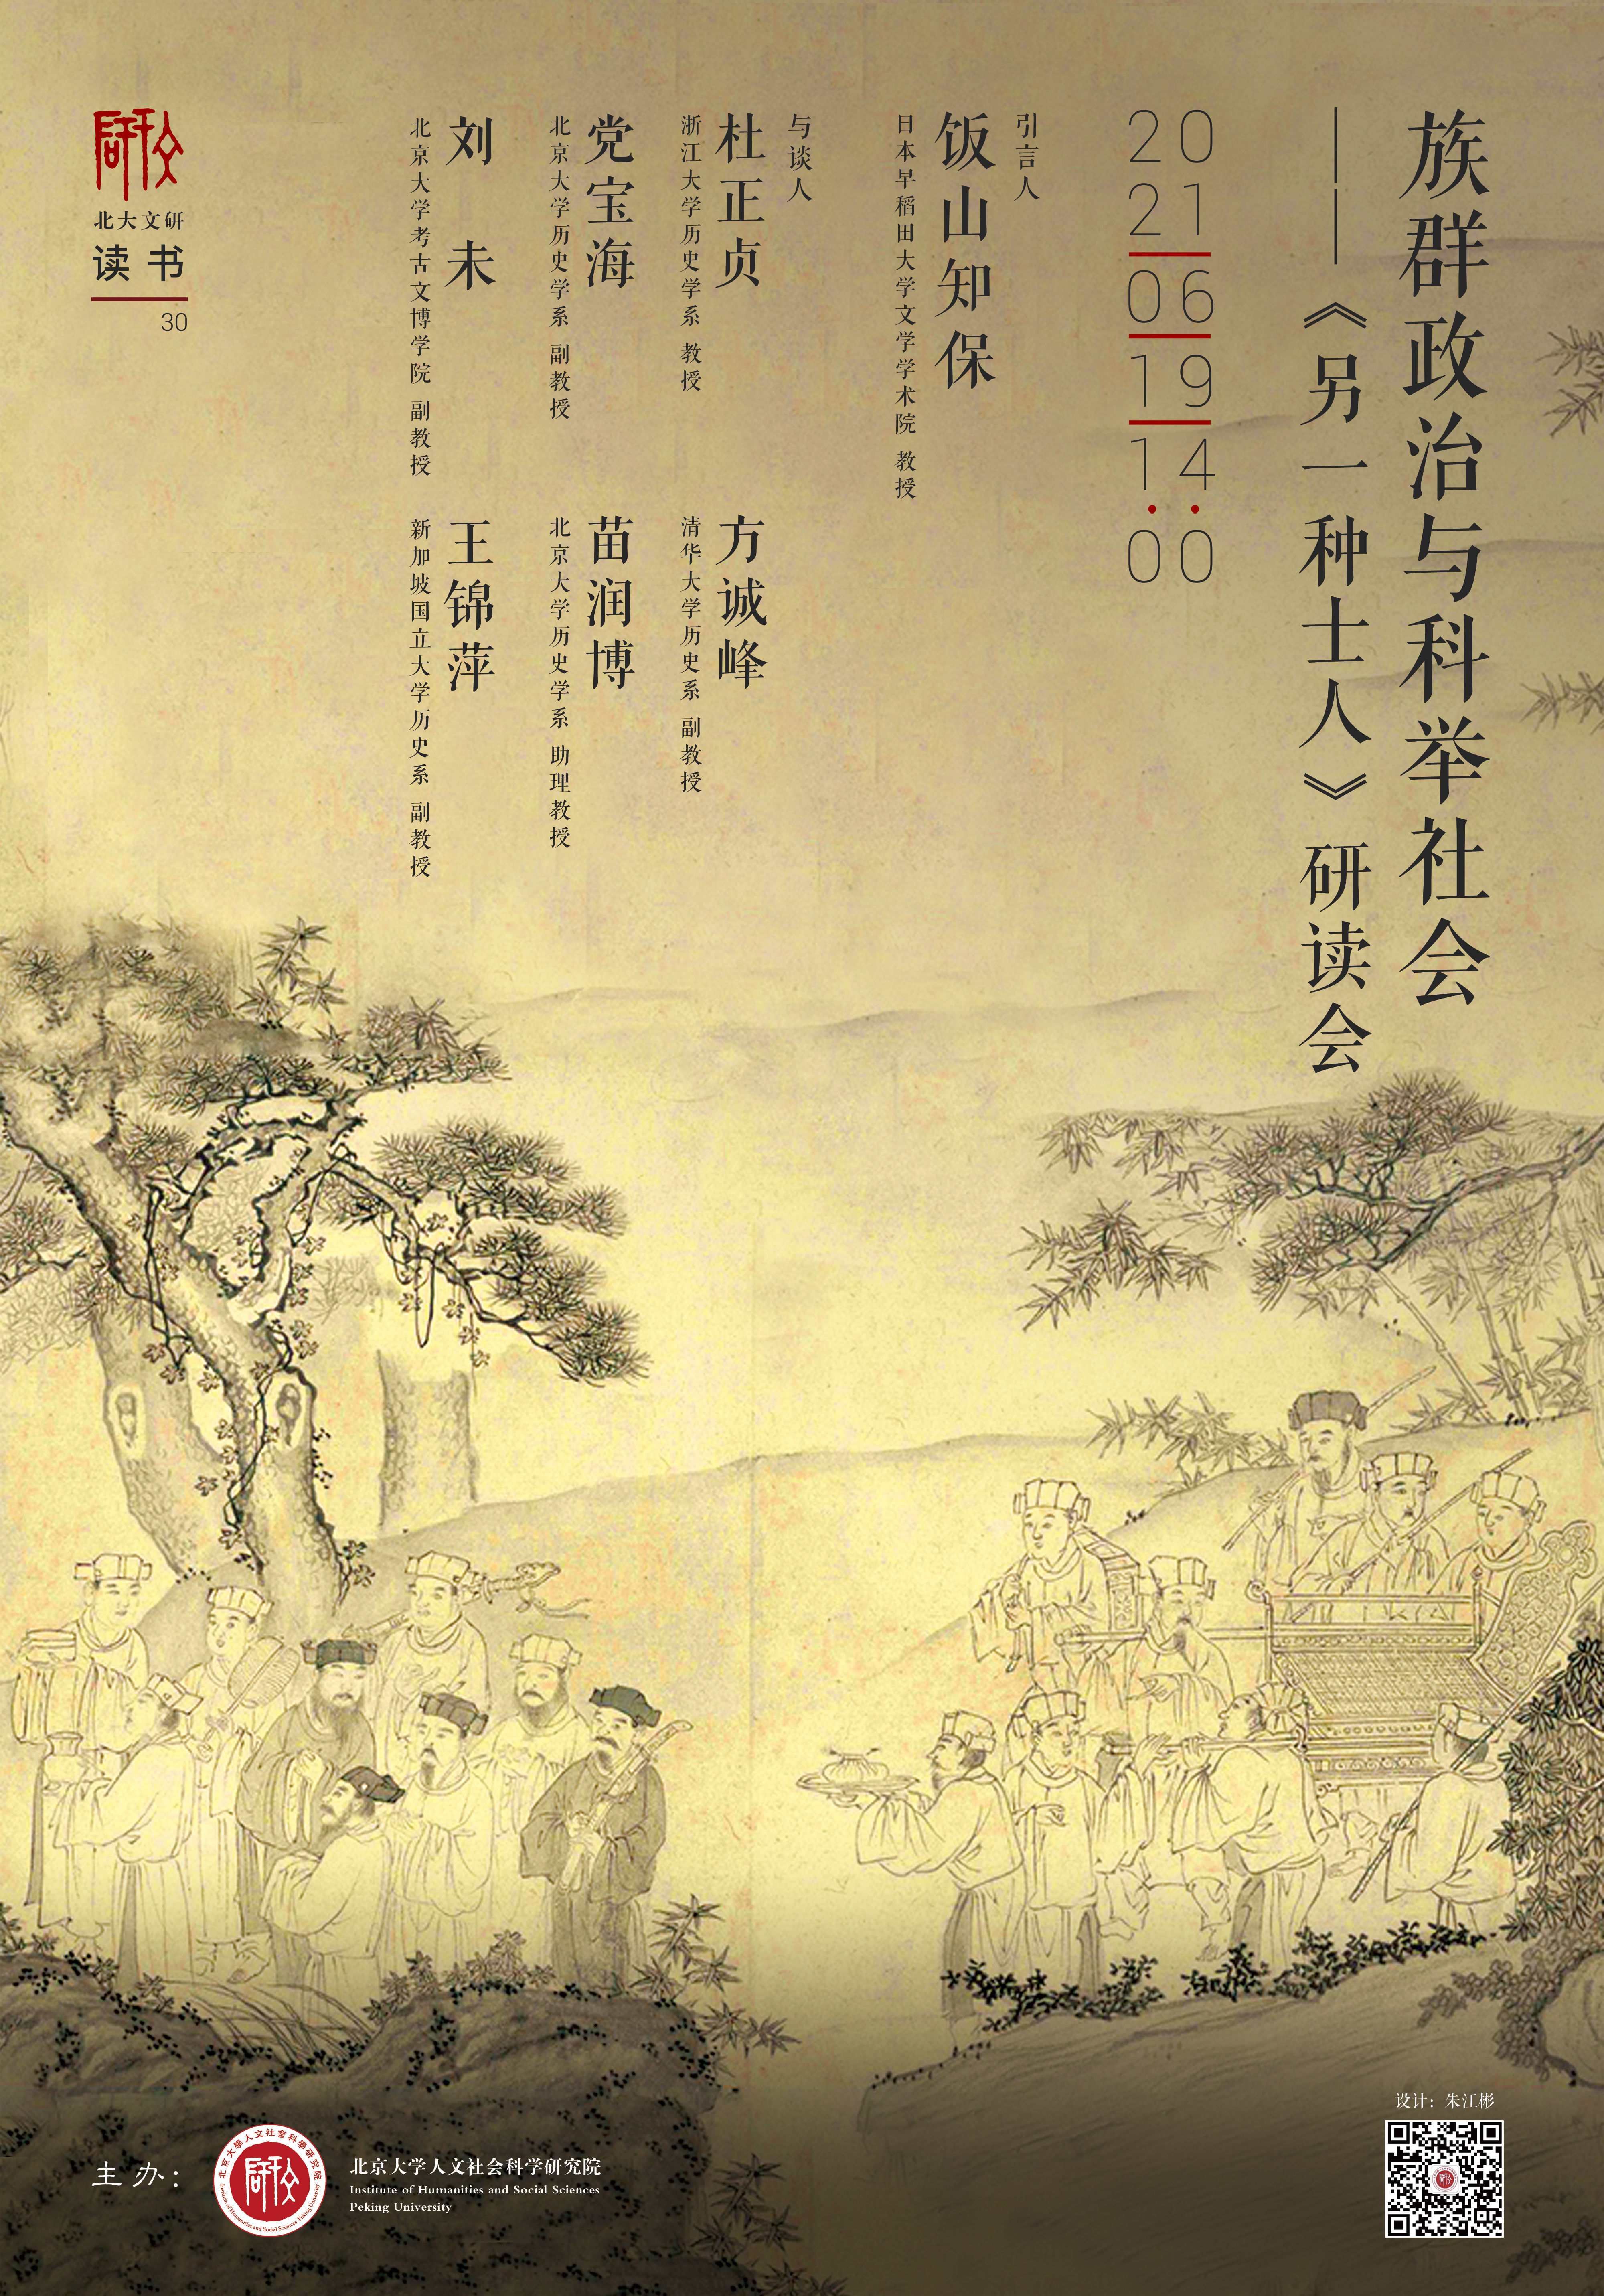 族群政治与科举社会
——《另一种士人》研读会
20
21
06
19
14
:
00
引言人
饭山知保
日本早稻田大学文学学术院 教授
与谈人
杜正贞
浙江大学历史学系 教授
方诚峰
清华大学历史系 副教授
党宝海
北京大学历史学系 副教授
苗润博
北京大学历史学系 助理教授
刘未
北京大学考古文博学院 副教授
王锦萍
新加坡国立大学历史系 副教授
文研
北大文研
读书
30
设计：朱江彬
主办：
北京大學人文社會科學研究院
Institute of Humanities and Social Sciences Peking University
文研
北京大学人文社会科学研究院
Institute of Humanities and Social Sciences
Peking University